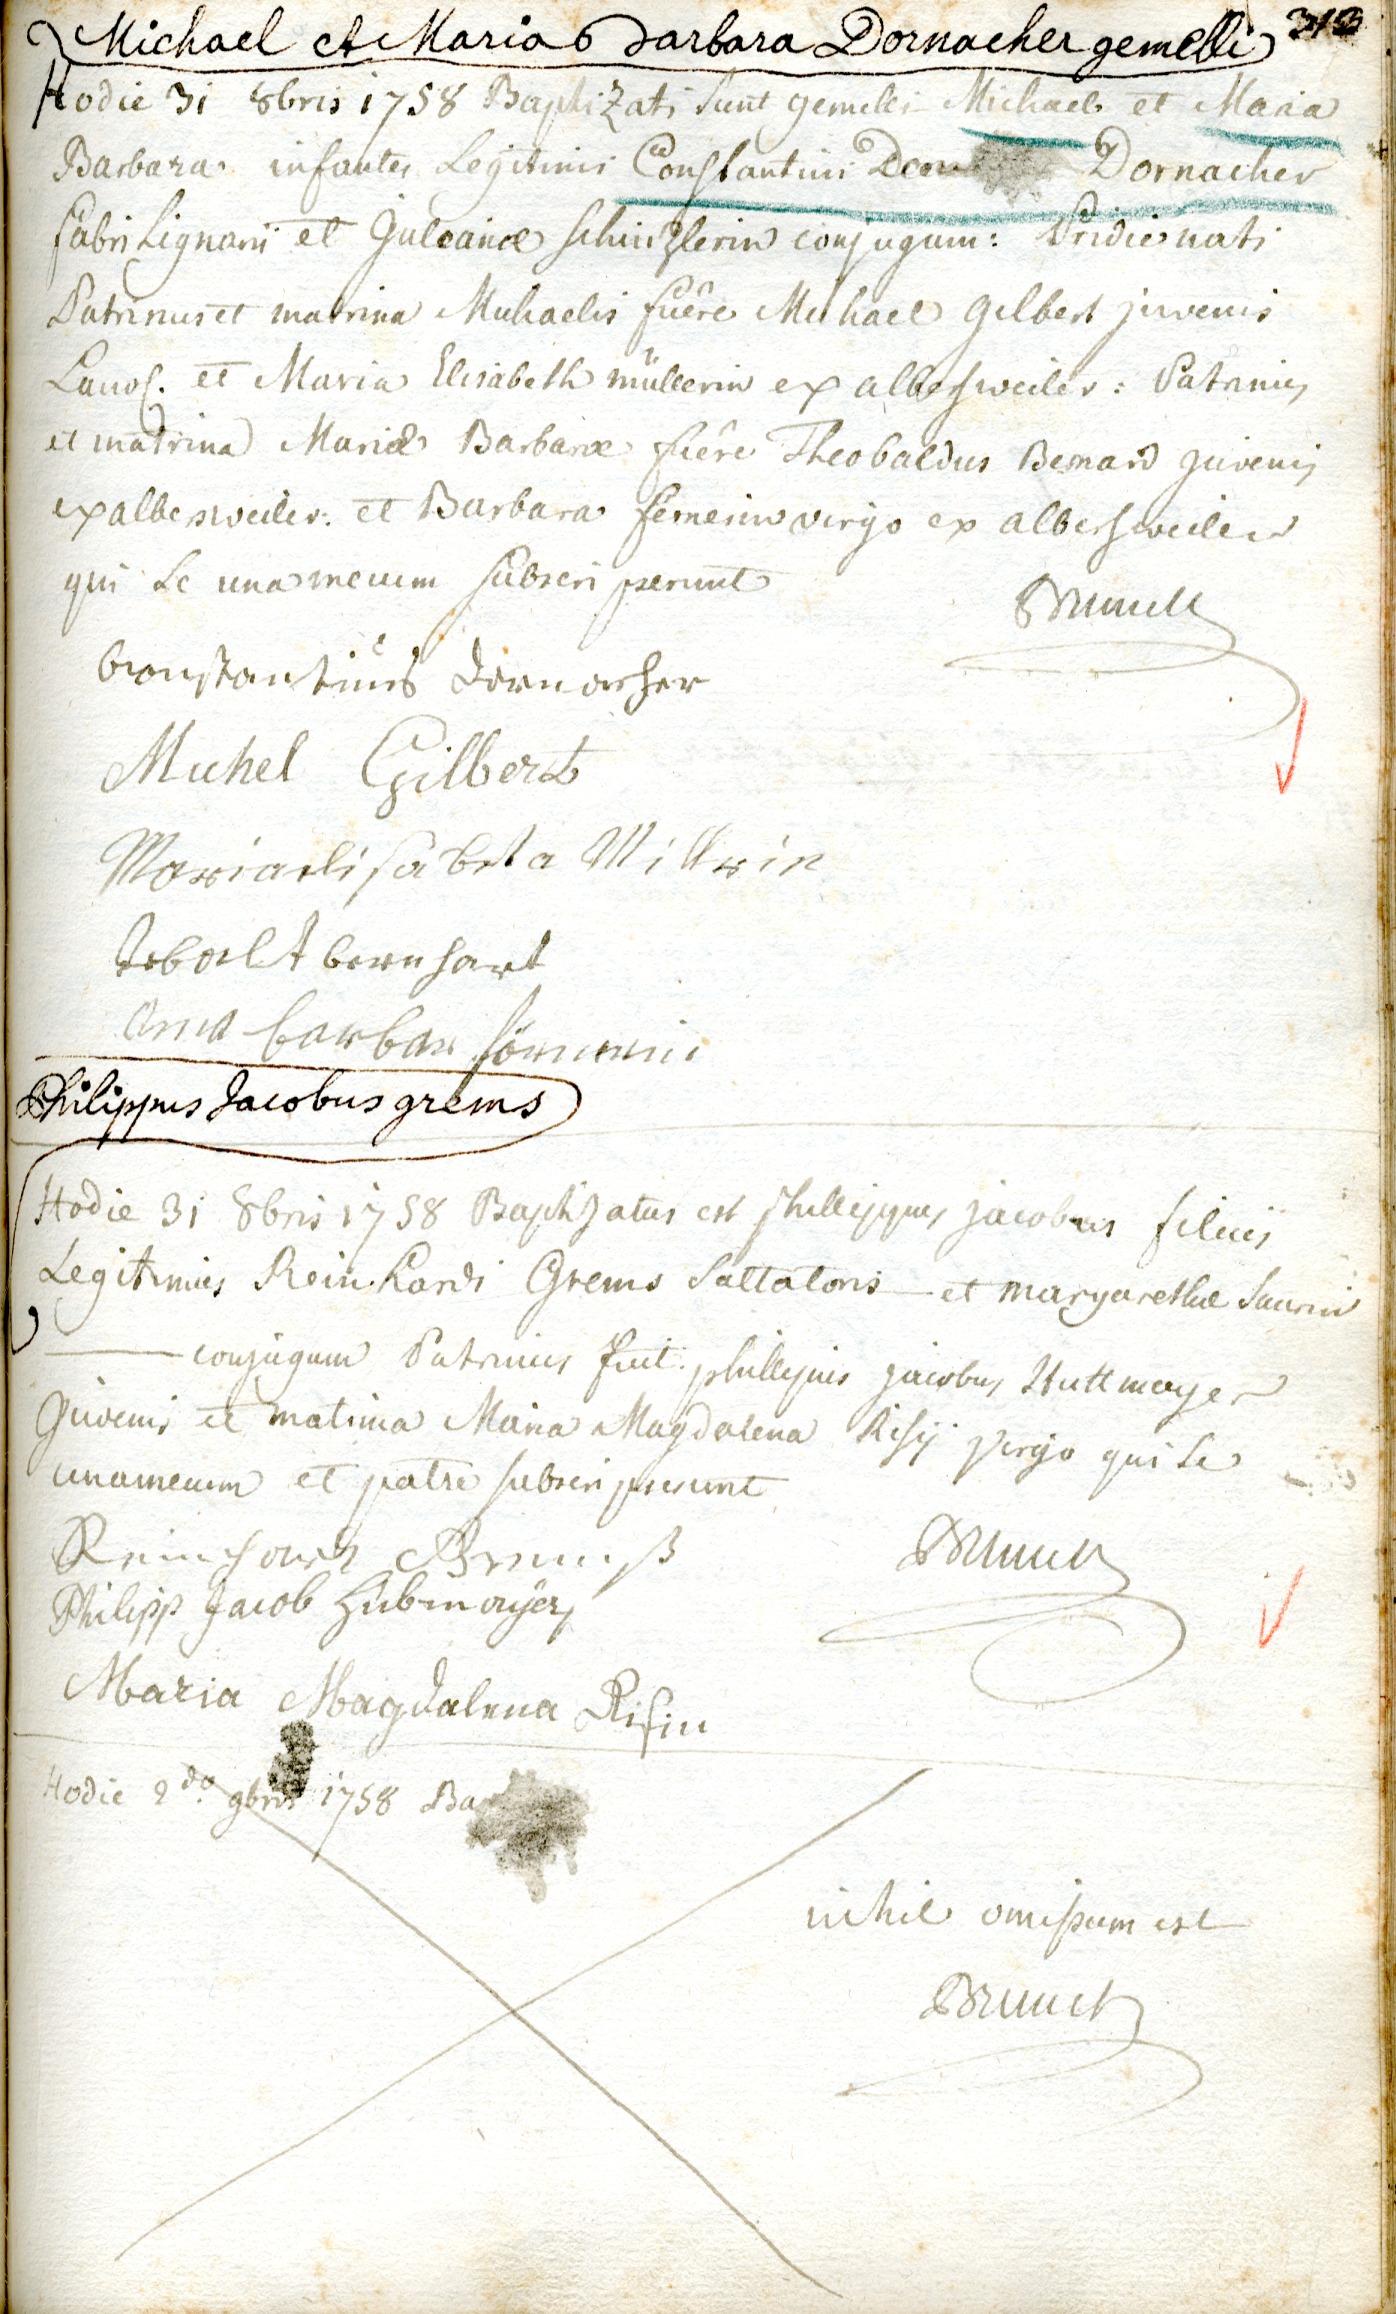 Michael et Maria barbara Dornacher gemelli
Hodie 31 8bris 1758 Baptizati sunt gemelli Michael et Maria
Barbara infantes Legitimi Constantini Dornacher
fabri Lignarii et Julianæ Schinzlerin conjugum: Pridie nati
Patrinus et matrina Michaelis fuêre Michael gilbert juvenis
et Maria Elisabeth müllerin ex albersweiler: Patrinus
et matrina Mariæ Barbaræ fuêre Theobaldus Bernard juvenis
ex albersweiler: et Barbara fernerin virgo ex albersweiler
qui se una mecum subscripserunt
Brunck
Constantinus dornacher
Michel Gilbert
Maria elisabeta Millerin
debolt bernhart
anna barbar
Philippus Jacobus grems
Hodie 31 8bris 1758 Baptizatus est phillippus jacobus filius
Legitimus Reinhardi Grems Saltatoris et margarethæ Saurin
conjugum Patrinus fuit phillipus jacobus Huttmayer
juvenis et matrina Maria Magdalena Risij virgo qui se
una mecum et patre subscripserunt
Brunck
Reinhart Gremß
Philipp Jacob Hubmayer
Maria Magdalena Risin
Hodie 2do 9bris 1758 Ba
nihil omissum est
Brunck